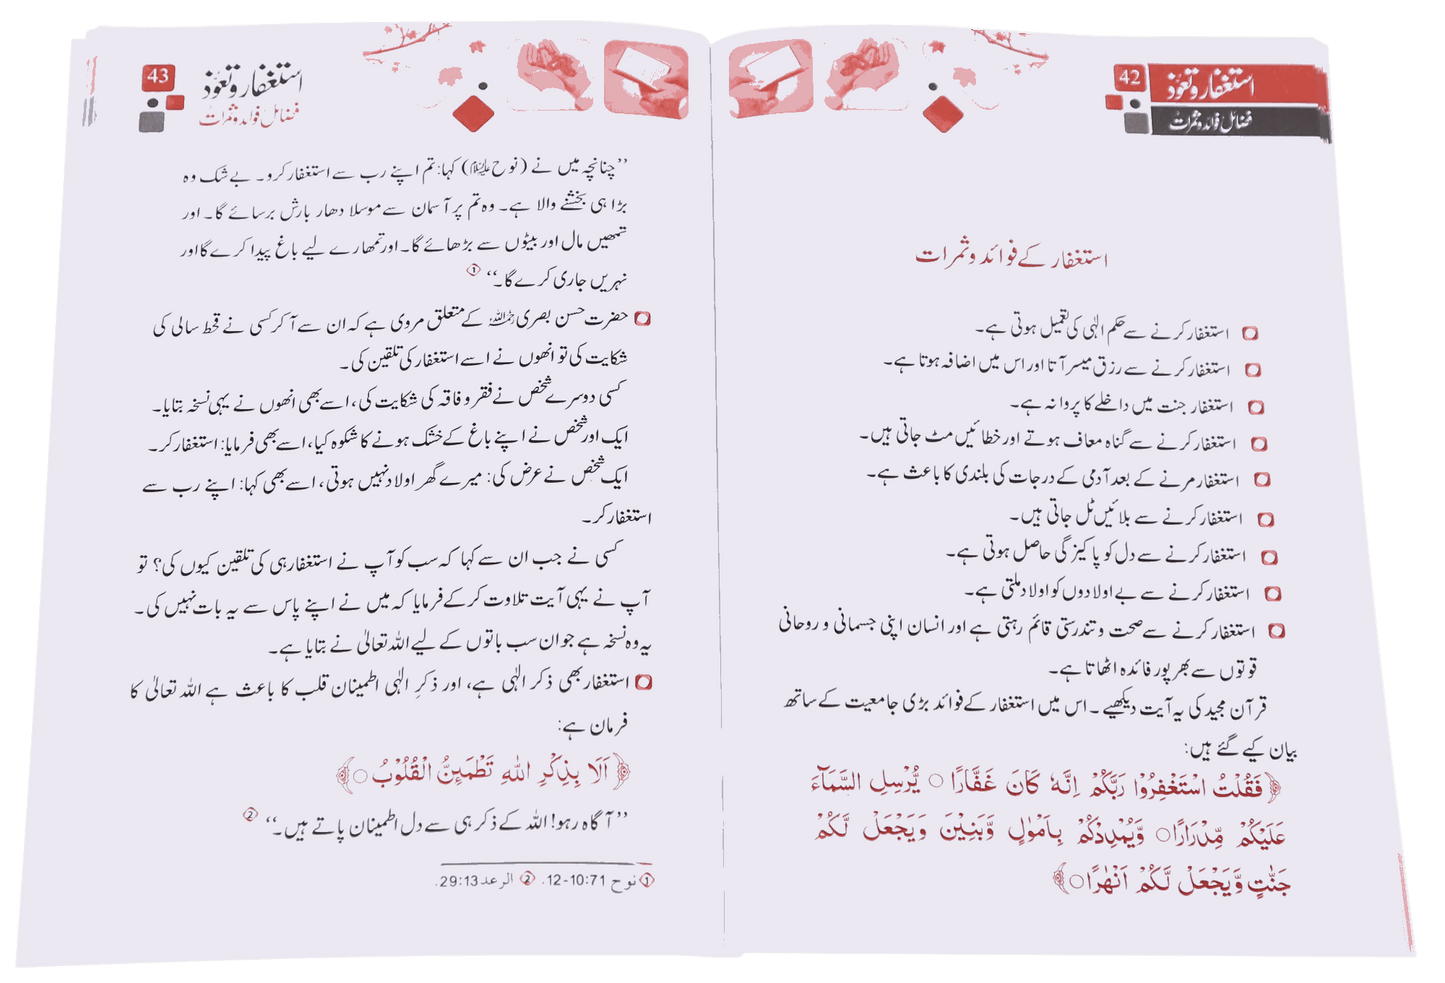 42
استغفار و تعوّذ
فضائل فوائد و ثمرات
استغفار کے فوائد و ثمرات
استغفار کرنے سے حکم الٰہی کی تعمیل ہوتی ہے۔
استغفار کرنے سے رزق میسر آتا اور اس میں اضافہ ہوتا ہے۔
استغفار جنت میں داخلے کا پروانہ ہے۔
استغفار کرنے سے گناہ معاف ہوتے اور خطائیں مٹ جاتی ہیں۔
استغفار مرنے کے بعد آدمی کے درجات کی بلندی کا باعث ہے۔
استغفار کرنے سے بلائیں ٹل جاتی ہیں۔
استغفار کرنے سے دل کو پاکیزگی حاصل ہوتی ہے۔
استغفار کرنے سے بے اولادوں کو اولاد ملتی ہے۔
استغفار کرنے سے صحت و تندرستی قائم رہتی ہے اور انسان اپنی جسمانی و روحانی
قوتوں سے بھرپور فائدہ اٹھاتا ہے۔
قرآن مجید کی یہ آیت دیکھیے۔ اس میں استغفار کے فوائد بڑی جامعیت کے ساتھ
بیان کیے گئے ہیں:
﴿فَقُلْتُ اسْتَغْفِرُوْا رَبَّكُمْ اِنَّهٗ كَانَ غَفَّارًا ○ يُّرْسِلِ السَّمَآءَ
عَلَيْكُمْ مِّدْرَارًا ○ وَّيُمْدِدْكُمْ بِاَمْوٰلٍ وَّبَنِيْنَ وَيَجْعَلْ لَّكُمْ
جَنّٰتٍ وَّيَجْعَلْ لَّكُمْ اَنْهٰرًا ○﴾
43
استغفار و تعوّذ
فضائل فوائد و ثمرات
’’چنانچہ میں نے (نوح علیہ السلام) کہا: تم اپنے رب سے استغفار کرو۔ بے شک وہ
بڑا ہی بخشنے والا ہے۔ وہ تم پر آسمان سے موسلا دھار بارش برسائے گا۔ اور
تمھیں مال اور بیٹوں سے بڑھائے گا۔ اور تمھارے لیے باغ پیدا کرے گا اور
نہریں جاری کرے گا۔‘‘ ①
حضرت حسن بصری رحمہ اللہ کے متعلق مروی ہے کہ ان سے آکر کسی نے قحط سالی کی
شکایت کی تو انھوں نے اسے استغفار کی تلقین کی۔
کسی دوسرے شخص نے فقر و فاقہ کی شکایت کی، اسے بھی انھوں نے یہی نسخہ بتایا۔
ایک اور شخص نے اپنے باغ کے خشک ہونے کا شکوہ کیا، اسے بھی فرمایا: استغفار کر۔
ایک شخص نے عرض کی: میرے گھر اولاد نہیں ہوتی، اسے بھی کہا: اپنے رب سے
استغفار کر۔
کسی نے جب ان سے کہا کہ سب کو آپ نے استغفار ہی کی تلقین کیوں کی؟ تو
آپ نے یہی آیت تلاوت کر کے فرمایا کہ میں نے اپنے پاس سے یہ بات نہیں کی۔
یہ وہ نسخہ ہے جو ان سب باتوں کے لیے اللہ تعالیٰ نے بتایا ہے۔
استغفار بھی ذکر الٰہی ہے، اور ذکرِ الٰہی اطمینان قلب کا باعث ہے اللہ تعالیٰ کا
فرمان ہے:
﴿اَلَا بِذِكْرِ اللّٰهِ تَطْمَىِٕنُّ الْقُلُوْبُ ○﴾
’’آگاہ رہو! اللہ کے ذکر ہی سے دل اطمینان پاتے ہیں۔‘‘ ②
① نوح 10:71-12. ② الرعد 29:13.